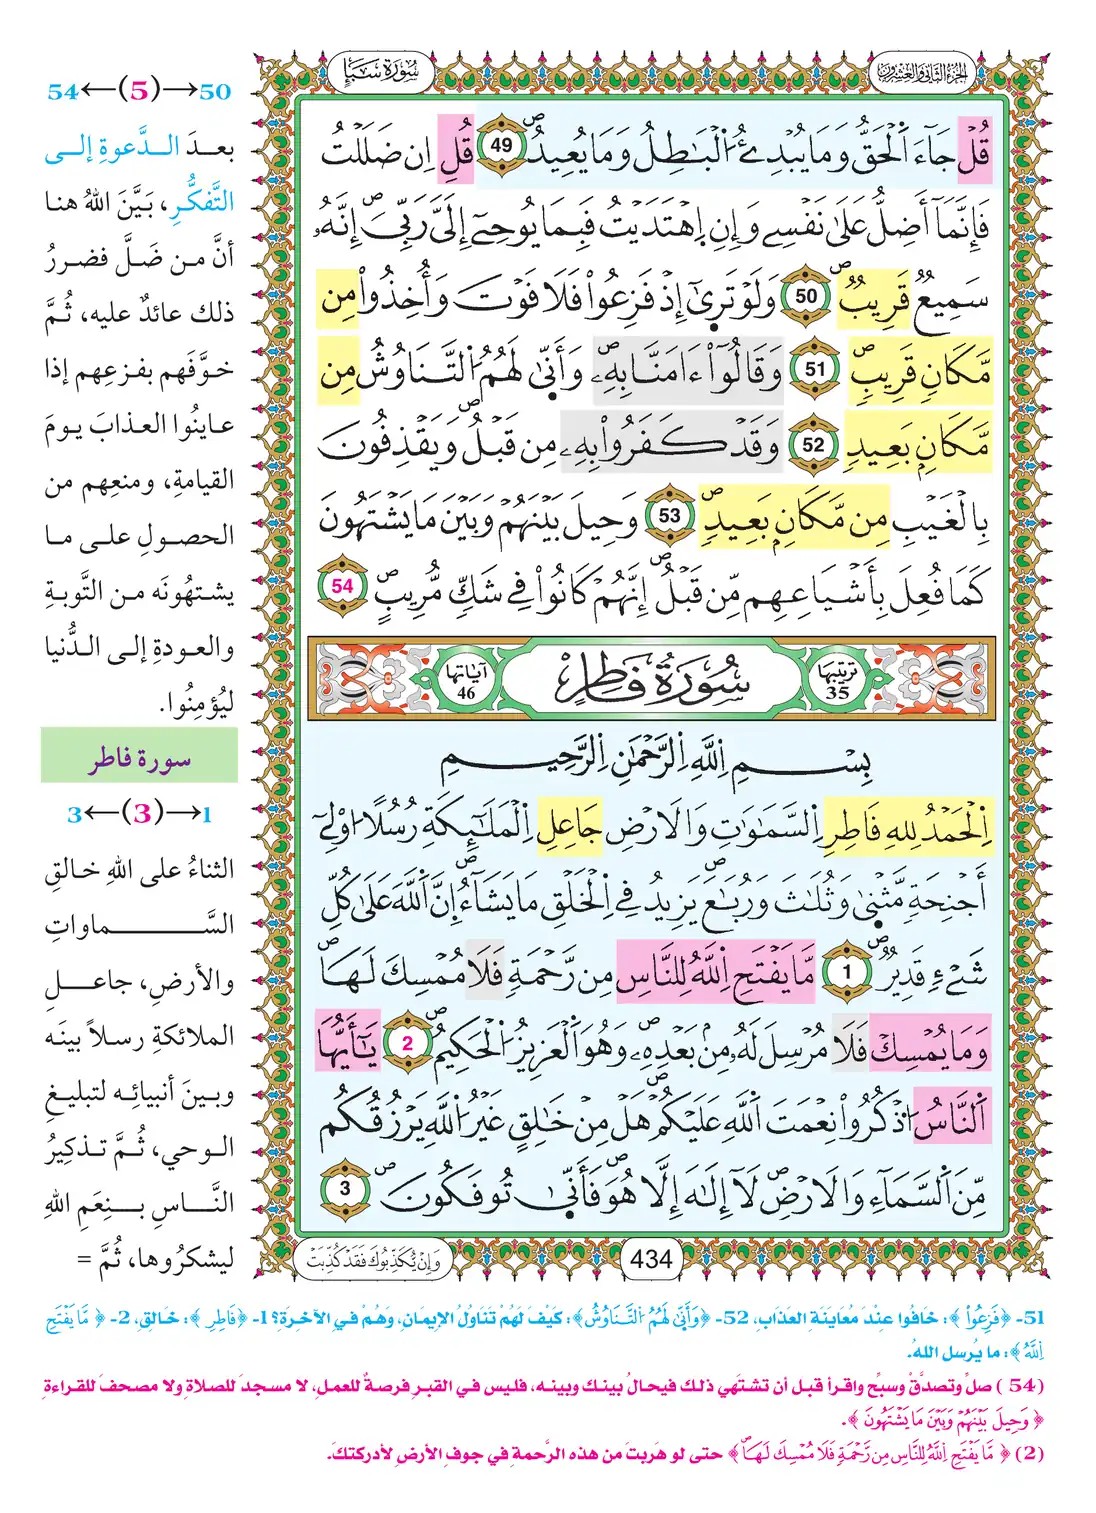 سُورَةُ سَبَإٍ
الجزء الثاني والعشرون
قُلْ جَآءَ اَ۬لْحَقُّ وَمَا يُبْدِئُ اُ۬لْبَٰطِلُ وَمَا يُعِيدُۖ 49 قُلِ اِن ضَلَلْتُ
فَإِنَّمَآ أَضِلُّ عَلَىٰ نَفْسِے وَإِنِ اِ۪هْتَدَيْتُ فَبِمَا يُوحِےٓ إِلَيَّ رَبِّيَۖ إِنَّهُۥ
سَمِيعٌ قَرِيبٌۖ 50 وَلَوْ تَر۪ىٰٓ إِذْ فَزِعُواْ فَلَا فَوْتَ وَأُخِذُواْ مِن
مَّكَانٍ قَرِيبٍۖ 51 وَقَالُوٓاْ ءَامَنَّا بِهِۦۖ وَأَنّ۪ىٰ لَهُمُ اُ۬لتَّنَاوُشُ مِن
مَّكَانِۢ بَعِيدٍ 52 وَقَدْ كَفَرُواْ بِهِۦ مِن قَبْلُۖ وَيَقْذِفُونَ
بِالْغَيْبِ مِن مَّكَانِۢ بَعِيدٍۖ 53 وَحِيلَ بَيْنَهُمْ وَبَيْنَ مَا يَشْتَهُونَ
كَمَا فُعِلَ بِأَشْيَاعِهِم مِّن قَبْلُۖ إِنَّهُمْ كَانُواْ فِے شَكٍّ مُّرِيبٍۖ 54
ترتيبها 35 سُورَةُ فَاطِرٍ آياتها 46
بِسْمِ اِ۬للَّهِ اِ۬لرَّحْمَٰنِ اِ۬لرَّحِيمِ
اِ۬لْحَمْدُ لِلهِ فَاطِرِ اِ۬لسَّمَٰوَٰتِ وَالَارْضِ جَاعِلِ اِ۬لْمَلَٰٓئِكَةِ رُسُلاً ا۟وْلِےٓ
أَجْنِحَةٖ مَّثْن۪ىٰ وَثُلَٰثَ وَرُبَٰعَۖ يَزِيدُ فِے اِ۬لْخَلْقِ مَا يَشَآءُۖ اِنَّ اَ۬للَّهَ عَلَىٰ كُلِّ
شَےْءٖ قَدِيرٌۖ 1 مَّا يَفْتَحِ اِ۬للَّهُ لِلنَّاسِ مِن رَّحْمَةٖ فَلَا مُمْسِكَ لَهَاۖ
وَمَا يُمْسِكْ فَلَا مُرْسِلَ لَهُۥ مِنۢ بَعْدِهِۦۖ وَهُوَ اَ۬لْعَزِيزُ اُ۬لْحَكِيمُۖ 2 يَٰٓأَيُّهَا
اَ۬لنَّاسُ اُ۟ذْكُرُواْ نِعْمَتَ اَ۬للَّهِ عَلَيْكُمْۖ هَلْ مِنْ خَٰلِقٍ غَيْرُ اُ۬للَّهِ يَرْزُقُكُم
مِّنَ اَ۬لسَّمَآءِ وَالَارْضِۖ لَآ إِلَٰهَ إِلَّا هُوَۖ فَأَنّ۪ىٰ تُوفَكُونَۖ 3
وَإِنْ يُّكَذِّبُوكَ فَقَدْ كُذِّبَتْ
434
50→(5)←54
بعدَ الدَّعوةِ إلى
التَّفكُّرِ، بَيَّنَ اللهُ هنا
أنَّ من ضَلَّ فضررُ
ذلك عائدٌ عليه، ثُمَّ
خوَّفَهم بفزعِهم إذا
عاينُوا العذابَ يومَ
القيامةِ، ومنعِهم من
الحصولِ على ما
يشتهُونَه من التَّوبةِ
والعودةِ إلى الدُّنيا
ليُؤمِنُوا.
سورة فاطر
1→(3)←3
الثناءُ على اللهِ خالقِ
السَّماواتِ
والأرضِ، جاعلِ
الملائكةِ رسلاً بينَه
وبينَ أنبيائِه لتبليغِ
الوحي، ثُمَّ تذكيرُ
النَّاسِ بنِعَمِ اللهِ
ليشكرُوها، ثُمَّ =
51- ﴿فَزِعُواْ﴾: خَافُوا عِنْدَ مُعَايَنَةِ العَذَابِ، 52- ﴿وَأَنَّىٰ لَهُمُ اُ۬لتَّنَاوُشُ﴾: كَيْفَ لَهُمْ تَنَاوُلُ الإِيمَانِ، وَهُمْ فِي الآخِرَةِ؟ 1- ﴿فَاطِرِ﴾: خَالِقِ، 2- ﴿مَّا يَفْتَحِ
اِ۬للَّهُ﴾: ما يُرسل اللهُ.
(54) صلِّ وتصدَّقْ وسبِّح واقرأ قبل أن تشتَهي ذلك فيحالُ بينك وبينه، فليس في القبرِ فرصةٌ للعملِ، لا مسجدَ للصلاةِ ولا مصحفَ للقراءةِ
﴿وَحِيلَ بَيْنَهُمْ وَبَيْنَ مَا يَشْتَهُونَ﴾.
(2) ﴿مَّا يَفْتَحِ اِ۬للَّهُ لِلنَّاسِ مِن رَّحْمَةٖ فَلَا مُمْسِكَ لَهَاۖ﴾ حتى لو هَربتَ من هذه الرَّحمةِ في جوفِ الأرضِ لأدركتكَ.